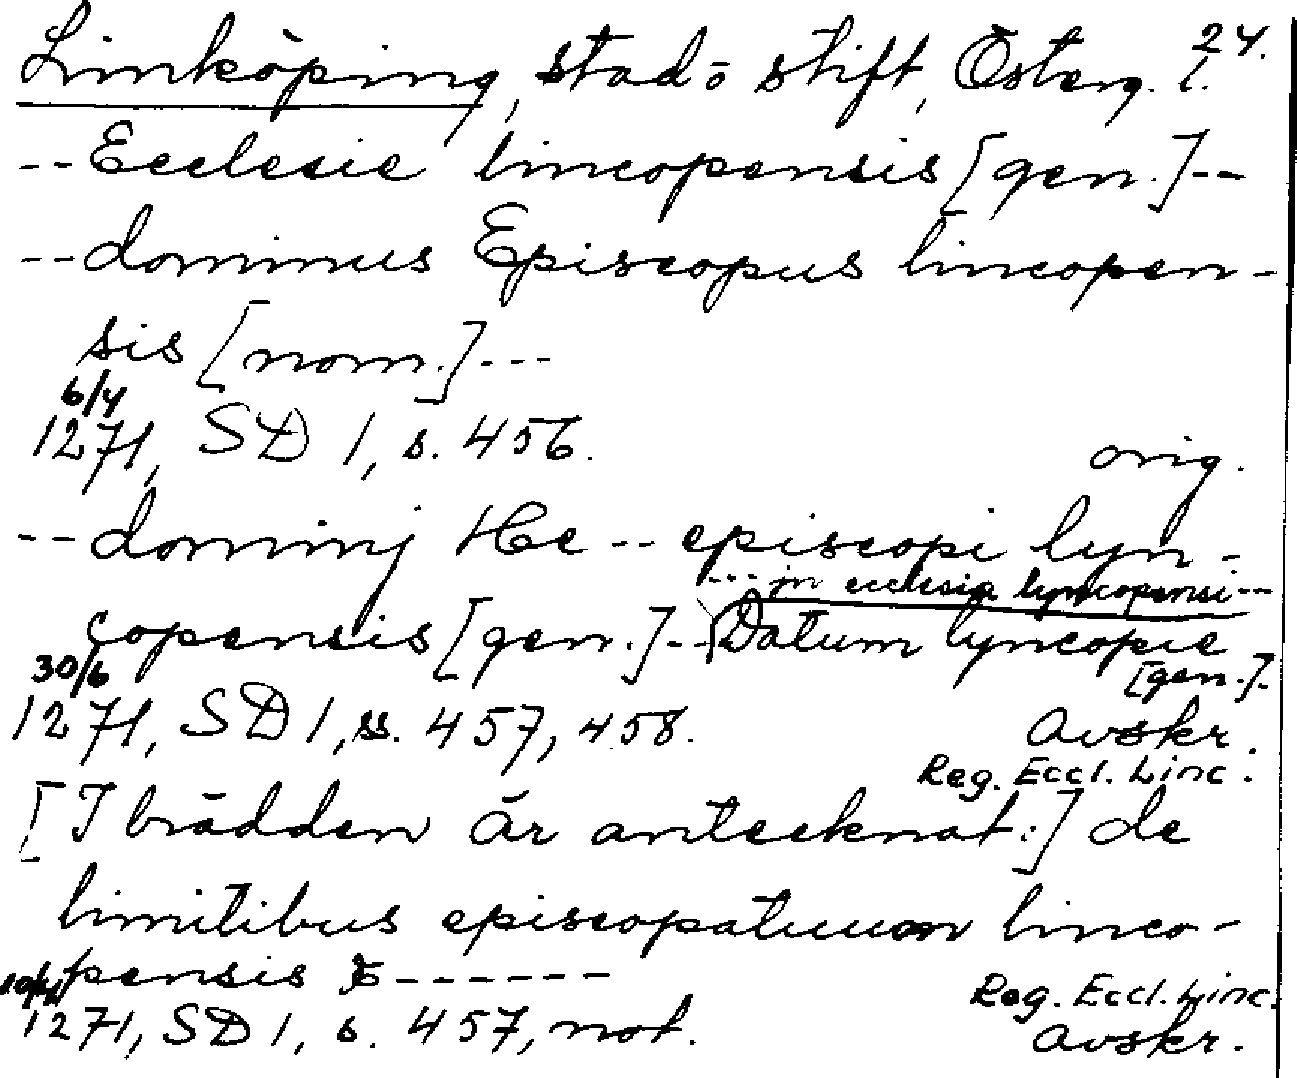 24.
Linköping, stad o stift, Österg. l.
--Ecclesie lincopensis [gen.]--
--dominus Episcopus lincopen-
sis [nom.]---
6/4
1271, SD 1, s. 456.
orig.
--dominj He -- episcopi lyn-
---jn ecclesia lyncopensi---
copensis [gen.]--Datum lyncopie
[gen.].
30/6
1271, SD 1, ss. 457, 458.
Avskr.
Reg. Eccl. Linc.
[I brädden är antecknat:] de
limitibus episcopatuum linco-
pensis & ------
Reg. Eccl. Linc.
1271, SD 1, s. 457, not.
avskr.